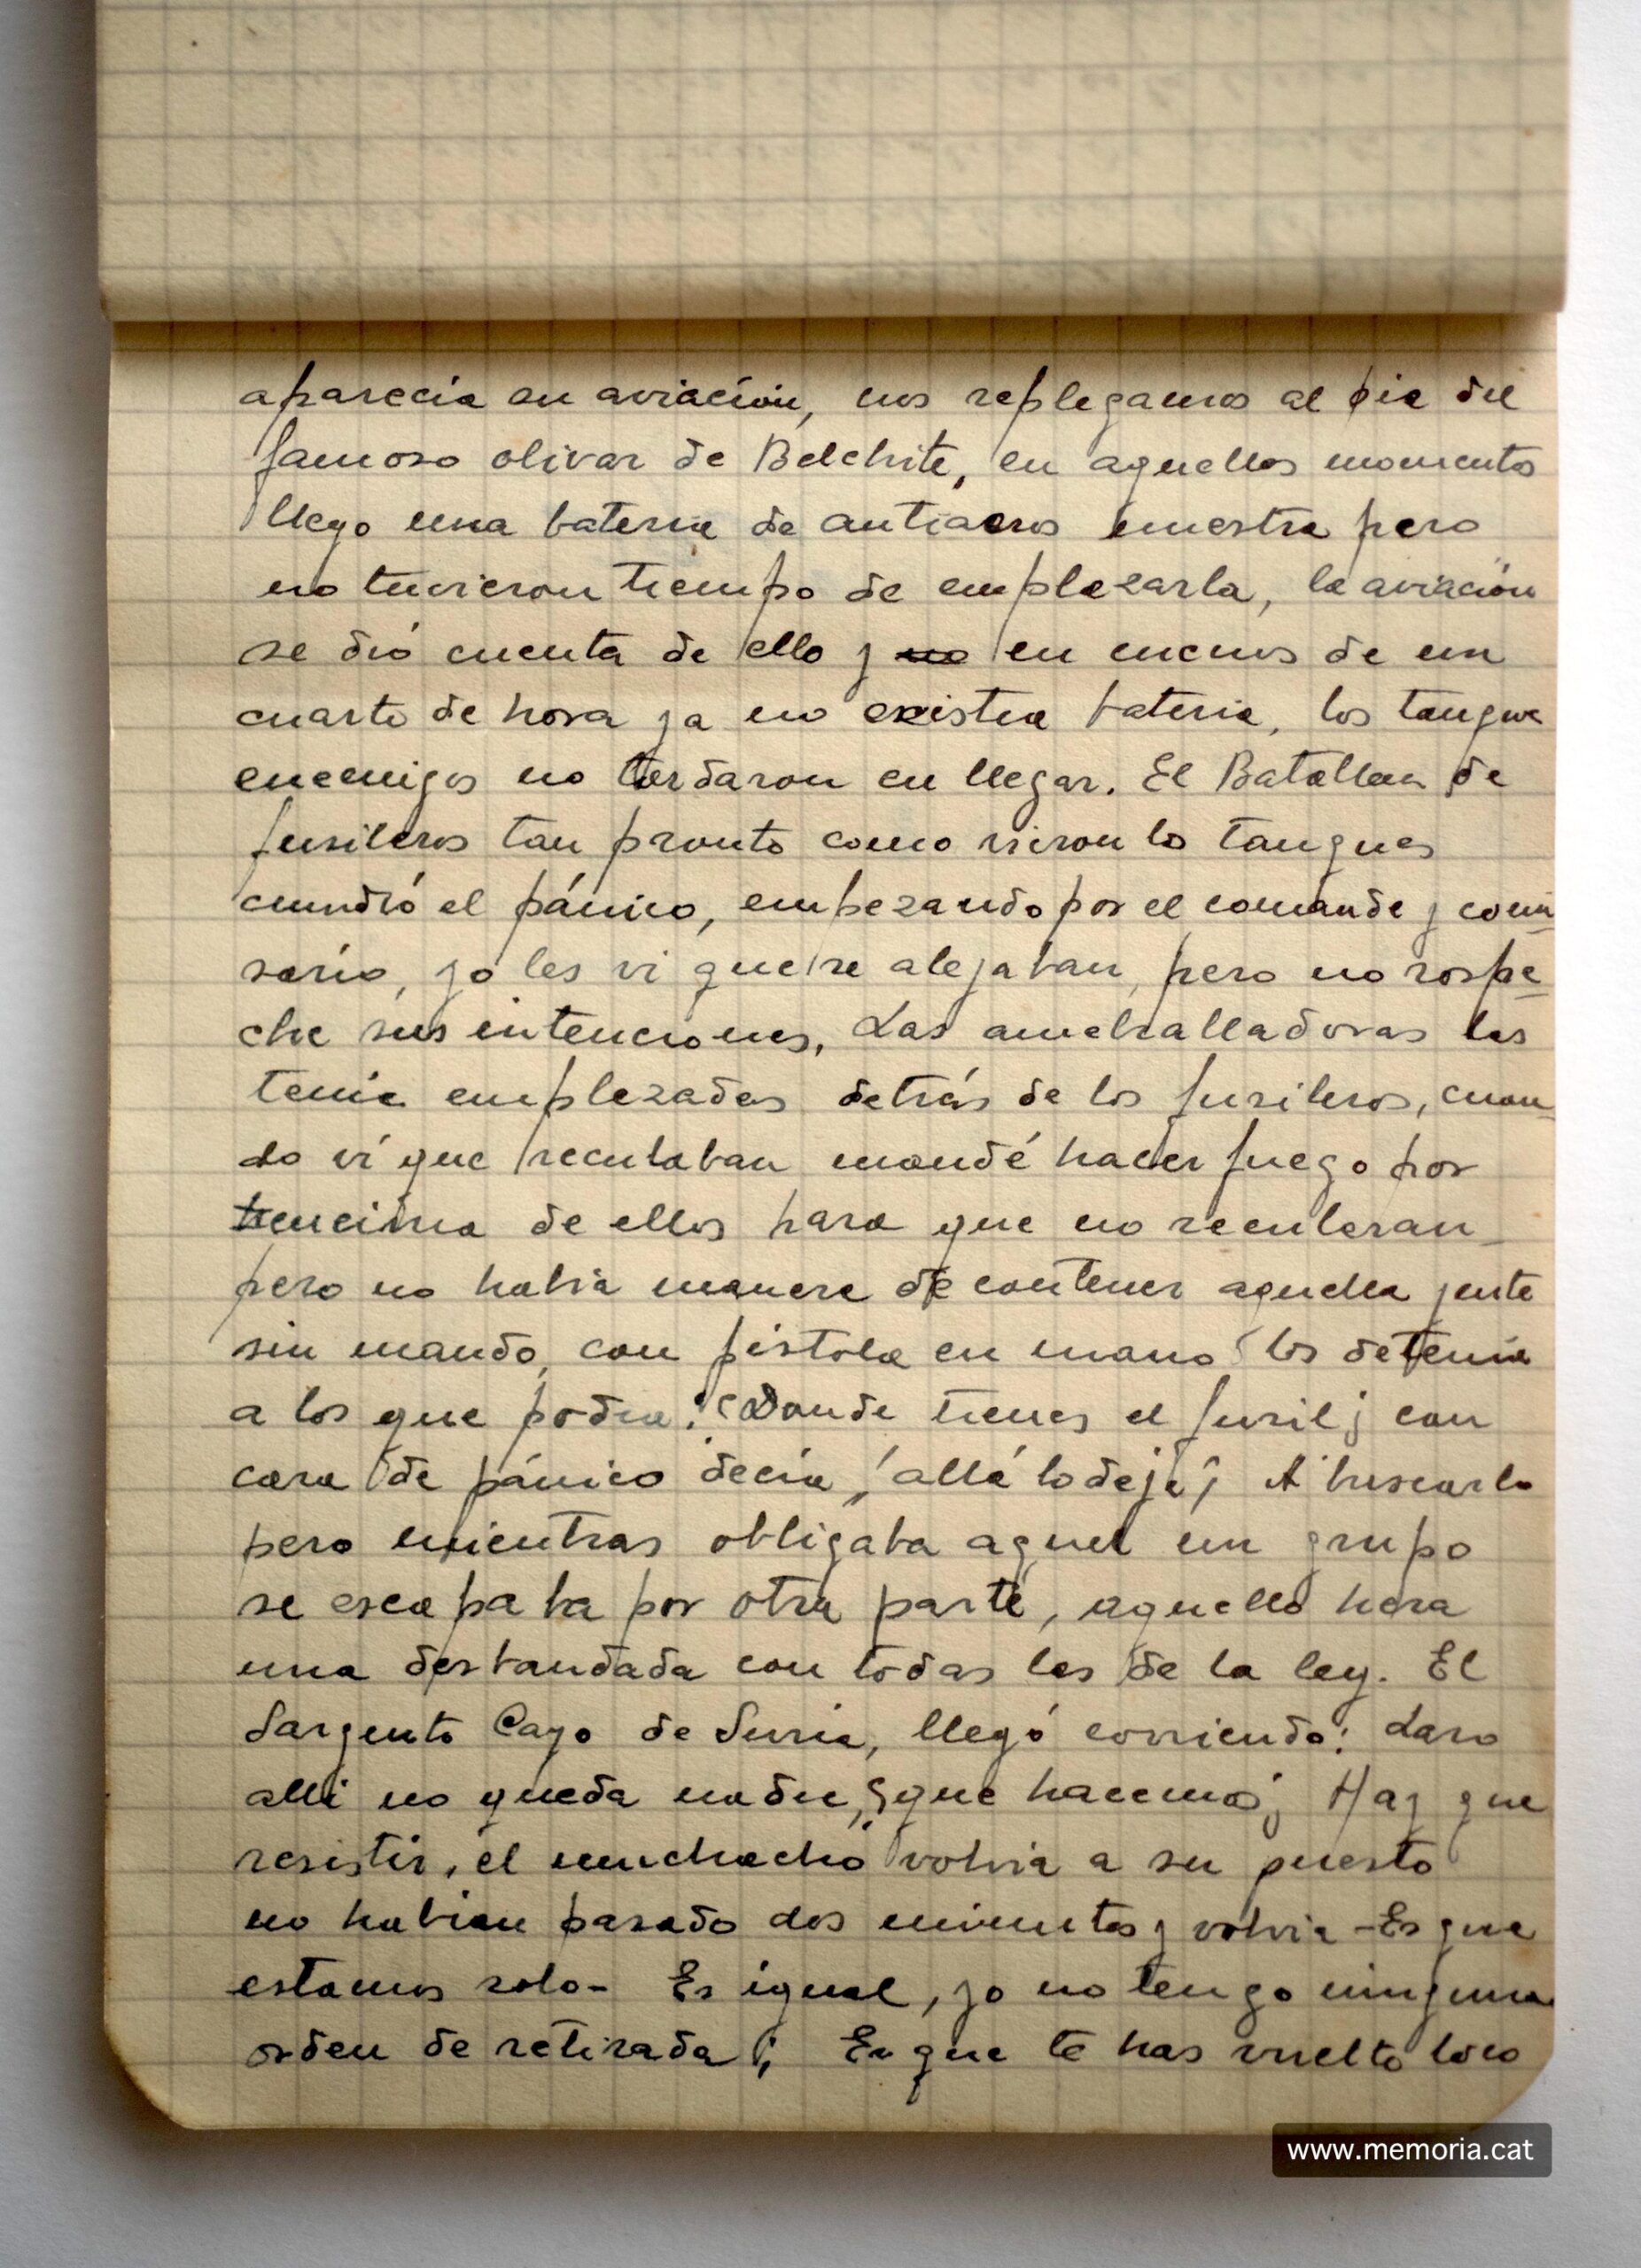 aparecia su aviación, nos replegamos al pie del
famoso olivar de Belchite, en aquellos momentos
llego una bateria de antiaeros nuestra pero
no tuvieron tiempo de emplazarla, la aviación
se dió cuenta de ello y no en menos de un
cuarto de hora ya no existia bateria, los tanques
enemigos no tardaron en llegar. El Batallon de
fusileros tan pronto como vieron lo tanques
cundió el pánico, empezando por el comande y comi_
sario, yo les vi que se alejaban, pero no sospe_
che sus intenciones, Las ametralladoras las
tenia emplazadas detrás de los fusileros, cuan_
do ví que reculaban mandé hacer fuego por
encima de ellos para que no recularan_
pero no habia manera de contener aquella jente
sin mando, con pistola en mano los detenia
a los que podia: ¿Donde tienes el fusil? con
cara de pánico decia, ¡allá lo dejé! A buscarlo
pero mientras obligaba aquel un grupo
se escapaba por otra parte, aquello hera
una desbandada con todas las de la ley. El
Sargento Cayo de Suria, llegó corriendo: Laro
alli no queda nadie, ¿que hacemos? Hay que
resistir, el muchacho volvia a su puesto
no habian pasado dos minutos y volvia -Es que
estamos solo- Es igual, yo no tengo ninguna
orden de retirada ¡; Es que te has vuelto loco
www.memoria.cat